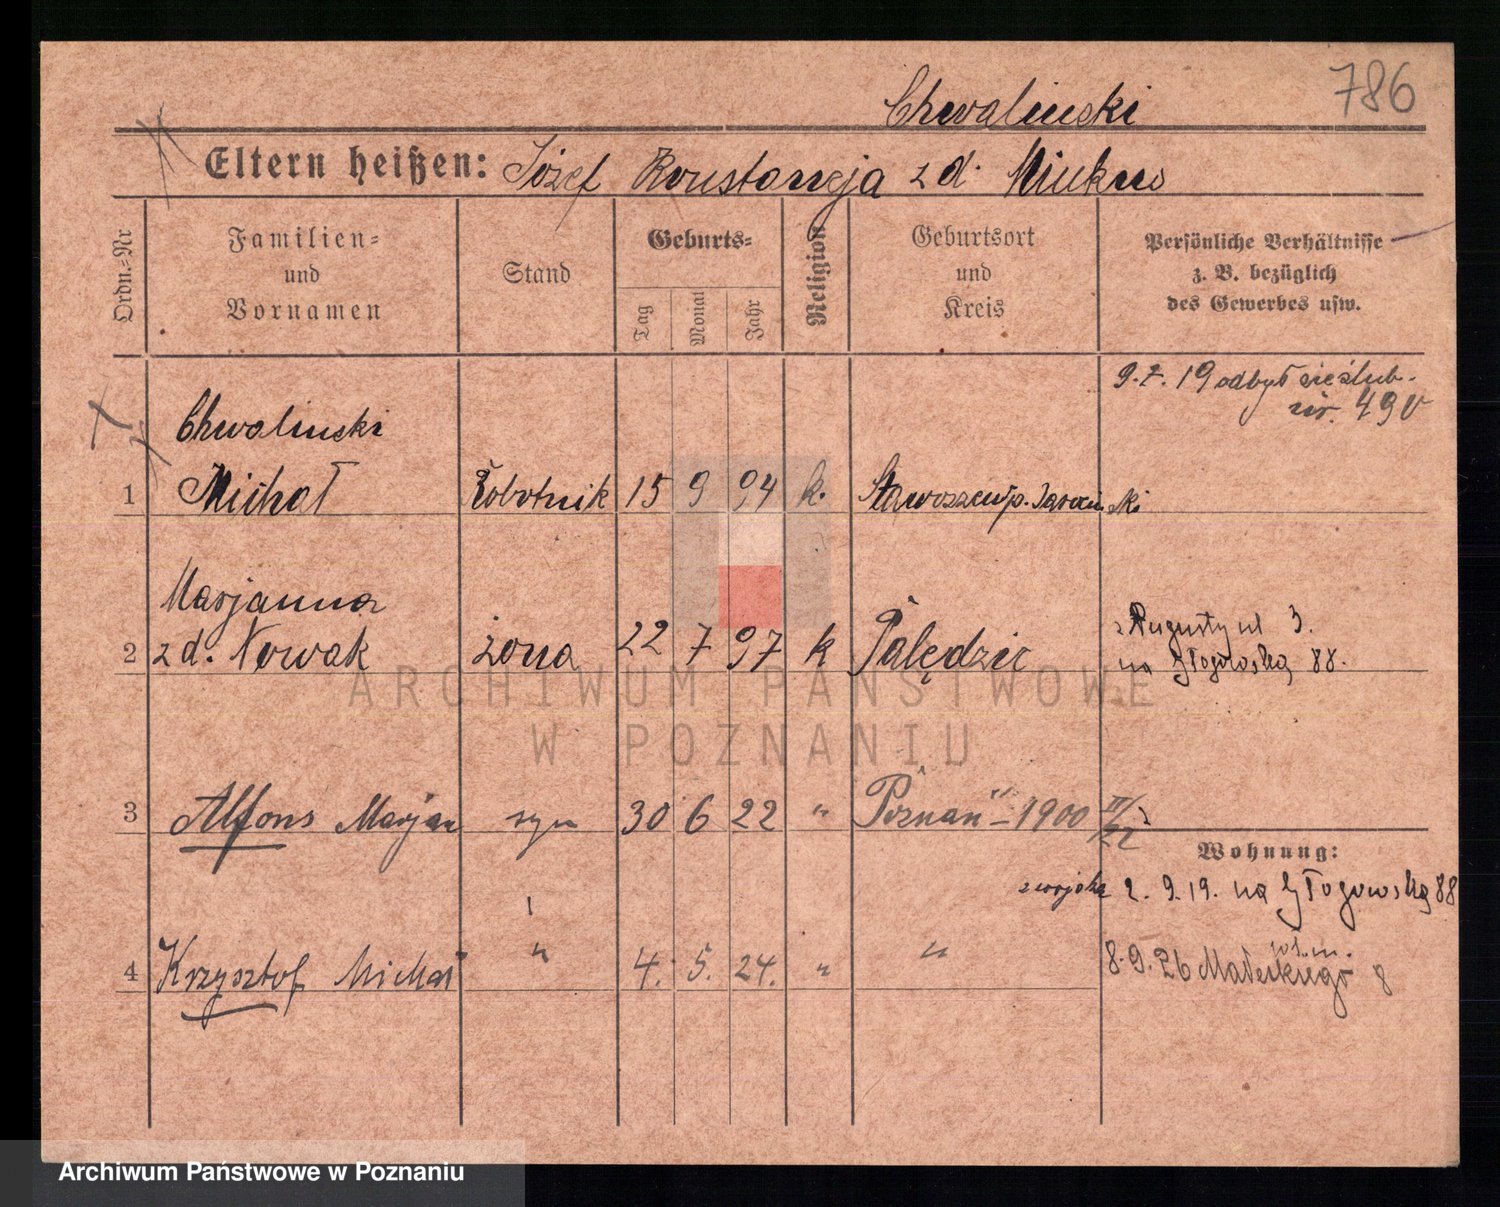 786
Chwalinski
Eltern heißen: Józef Konstancja z d.
Ordn.-Nr
Familien-
und
Vornamen
Stand
Geburts-
Tag
Monat
Jahr
Religion
Geburtsort
und
Kreis
Persönliche Verhältnisse
z. B. bezüglich
des Gewerbes usw.
9.7.19 odbył się ślub.
nr. 490
Chwalinski
1 Michał Robotnik 15 9 94 k.
Marjanna
2 z d. Nowak żona 22 7 97 k Palędzie
z Augusty ul 3.
na Głogowską 88.
ARCHIWUM PAŃSTWOWE
W POZNANIU
3 Alfons Marjan syn 30 6 22 " Poznań - 1900 II/22
Wohnung:
z wojska 2.9.19. na Głogowską 88
4 Krzysztof Michał " 4. 5. 24. " "
8.9.26 Matejkiego 8
Archiwum Państwowe w Poznaniu